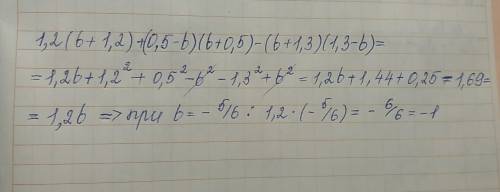 1,2(b+1,2)+(0,5-b)(b+0,5)-(b+1,3)(1,3-b)=
=1,2b+1,2²+0,5²-b²-1,3²+b²=1,2b+1,44+0,25-1,69=
=1,2b => при b=-5/6: 1,2·(-5/6)=-6/6=-1